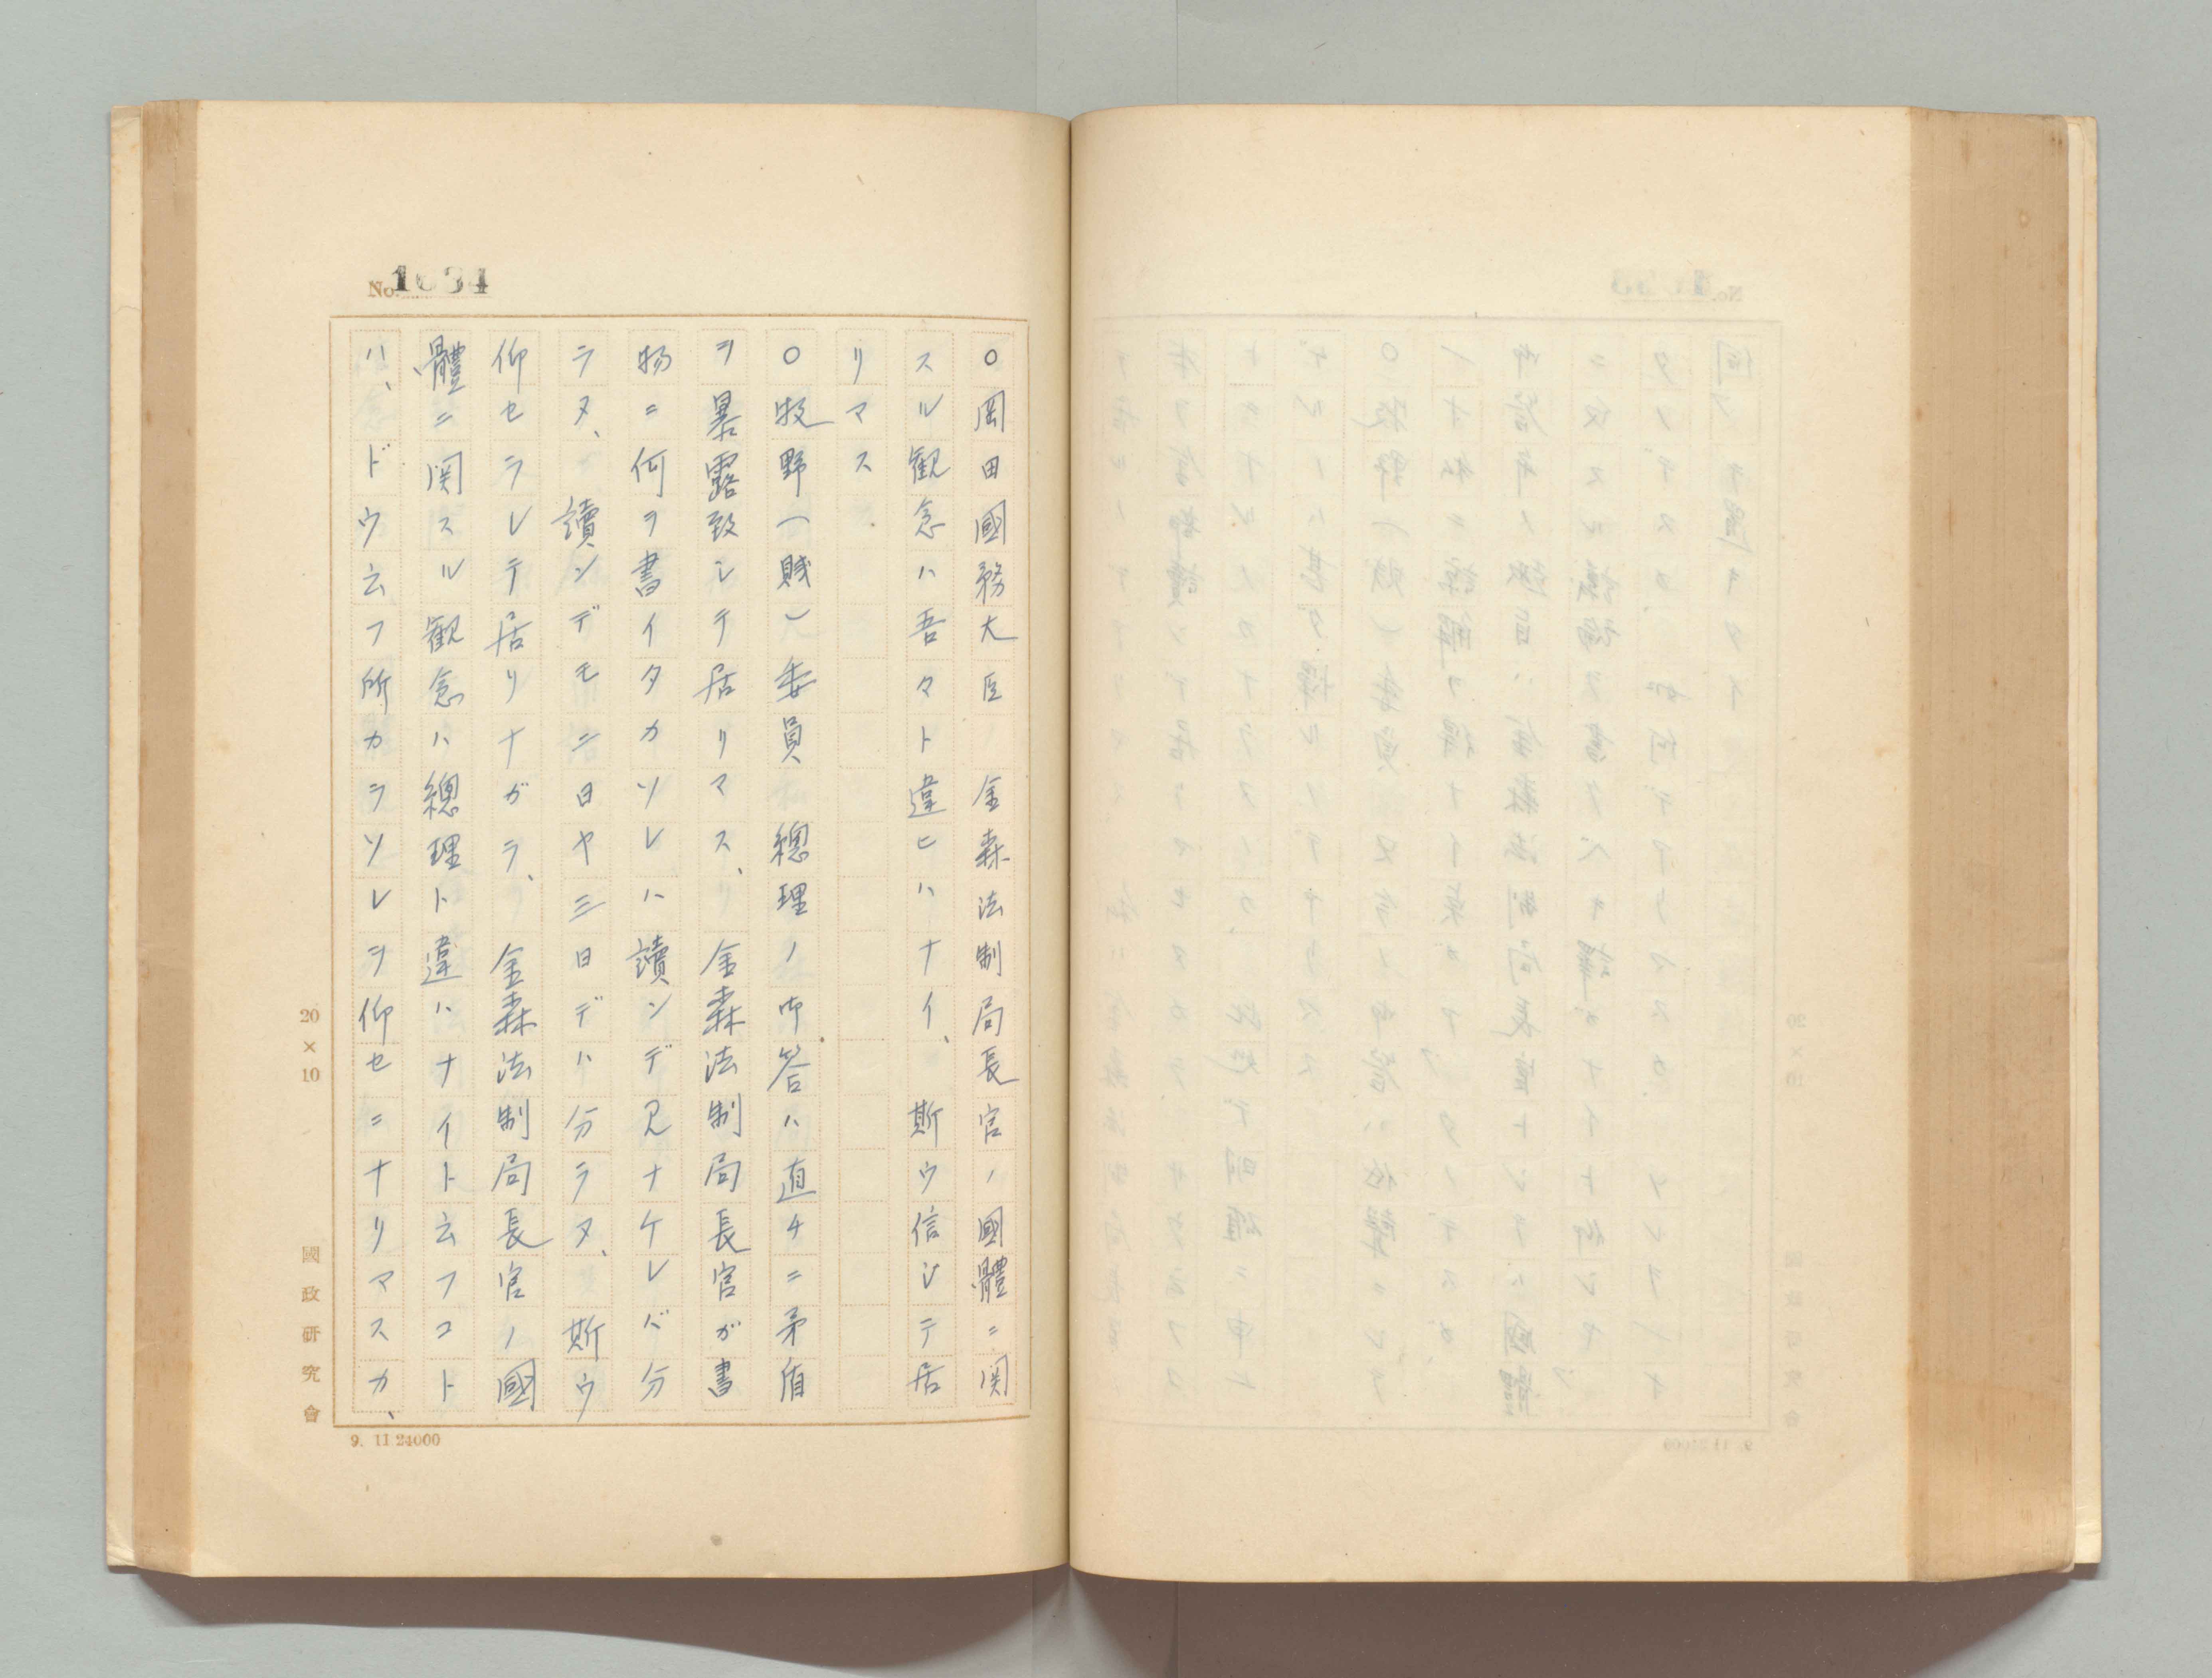 No. 1634
〇岡田國務大臣　金森法制局長官ノ國體ニ関
スル観念ハ吾々ト違ヒハナイ、斯ウ信ジテ居
リマス
〇牧野(賤)委員　總理ノ御答ハ直チニ矛盾
ヲ暴露致シテ居リマス、金森法制局長官ガ書
物ニ何ヲ書イタカソレハ讀ンデ見ナケレバ分
ラヌ、讀ンデモ二日ヤ三日デハ分ラヌ、斯ウ
仰セラレテ居リナガラ、金森法制局長官ノ國
體ニ関スル観念ハ總理ト違ハナイト云フコト
ハ、ドウ云フ所カラソレヲ仰セニナリマスカ、
20×10
國政研究會
9. 11 24000